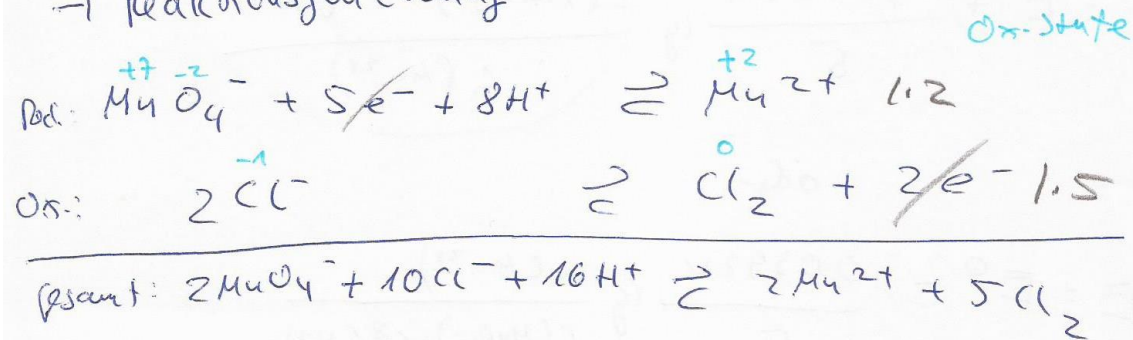 → Reaktionsgleichung
Ox-Stufe
+7 -2 +2
Red.: MnO₄⁻ + 5e⁻ + 8H⁺ ⇌ Mn²⁺ 1·2
-1 0
Ox.: 2Cl⁻ ⇌ Cl₂ + 2e⁻ 1·5
gesamt: 2MnO₄⁻ + 10Cl⁻ + 16H⁺ ⇌ 2Mn²⁺ + 5Cl₂